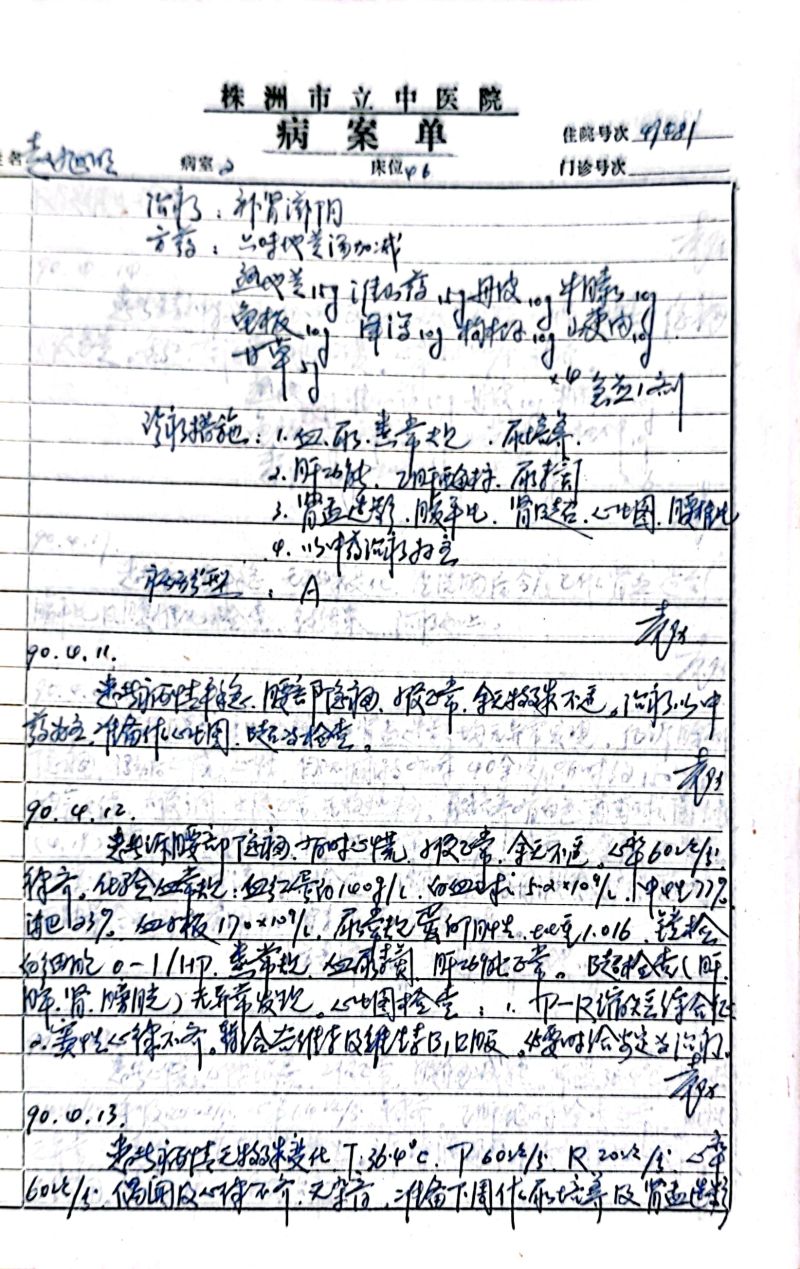 株洲市立中医院
病案单
住院号次 49481
姓名 病室 2 床位 46 门诊号次
治疗：补肾滋阴
方药：六味地黄汤加减
熟地黄15g 淮山药15g 丹皮10g 牛膝10g
龟板10g 泽泻10g 枸杞10g 山萸肉10g
甘草5g
×4 剂
诊疗措施：1. 血、尿、粪常规、尿培养.
2. 肝功能、乙肝 、尿
3. 肾盂造影、腹平片、肾B超、心电图、腰椎片
4. 以中药治疗为主
病历分型：A
90.4.11.
患者病情平稳、腰部隐痛、 正常、余无特殊不适。治疗以中
药为主、准备作心电图、B超等检查。
90.4.12.
患者诉腰部隐痛、有时心慌、 正常、余无不适。心率60次/分.
律齐。化验血常规：血红蛋白140g/L、白血球5.2×10⁹/L、中性77%
淋巴23%、血小板170×10⁹/L、尿常规蛋白阴性、比重1.016、镜检
白细胞0-1/HP、粪常规、血尿 、肝功能正常。B超检查（肝、
脾、肾、膀胱）无异常发现。心电图检查：1. P-R缩短综合征
2. 窦性心律不齐。 给 及维生素B₁口服。必要时给 治疗.
90.4.13.
患者病情无特殊变化、T:36.4°C、P 60次/分、R 20次/分、心率
60次/分、偶闻及心律不齐、无杂音、准备下周作尿培养及肾盂造影